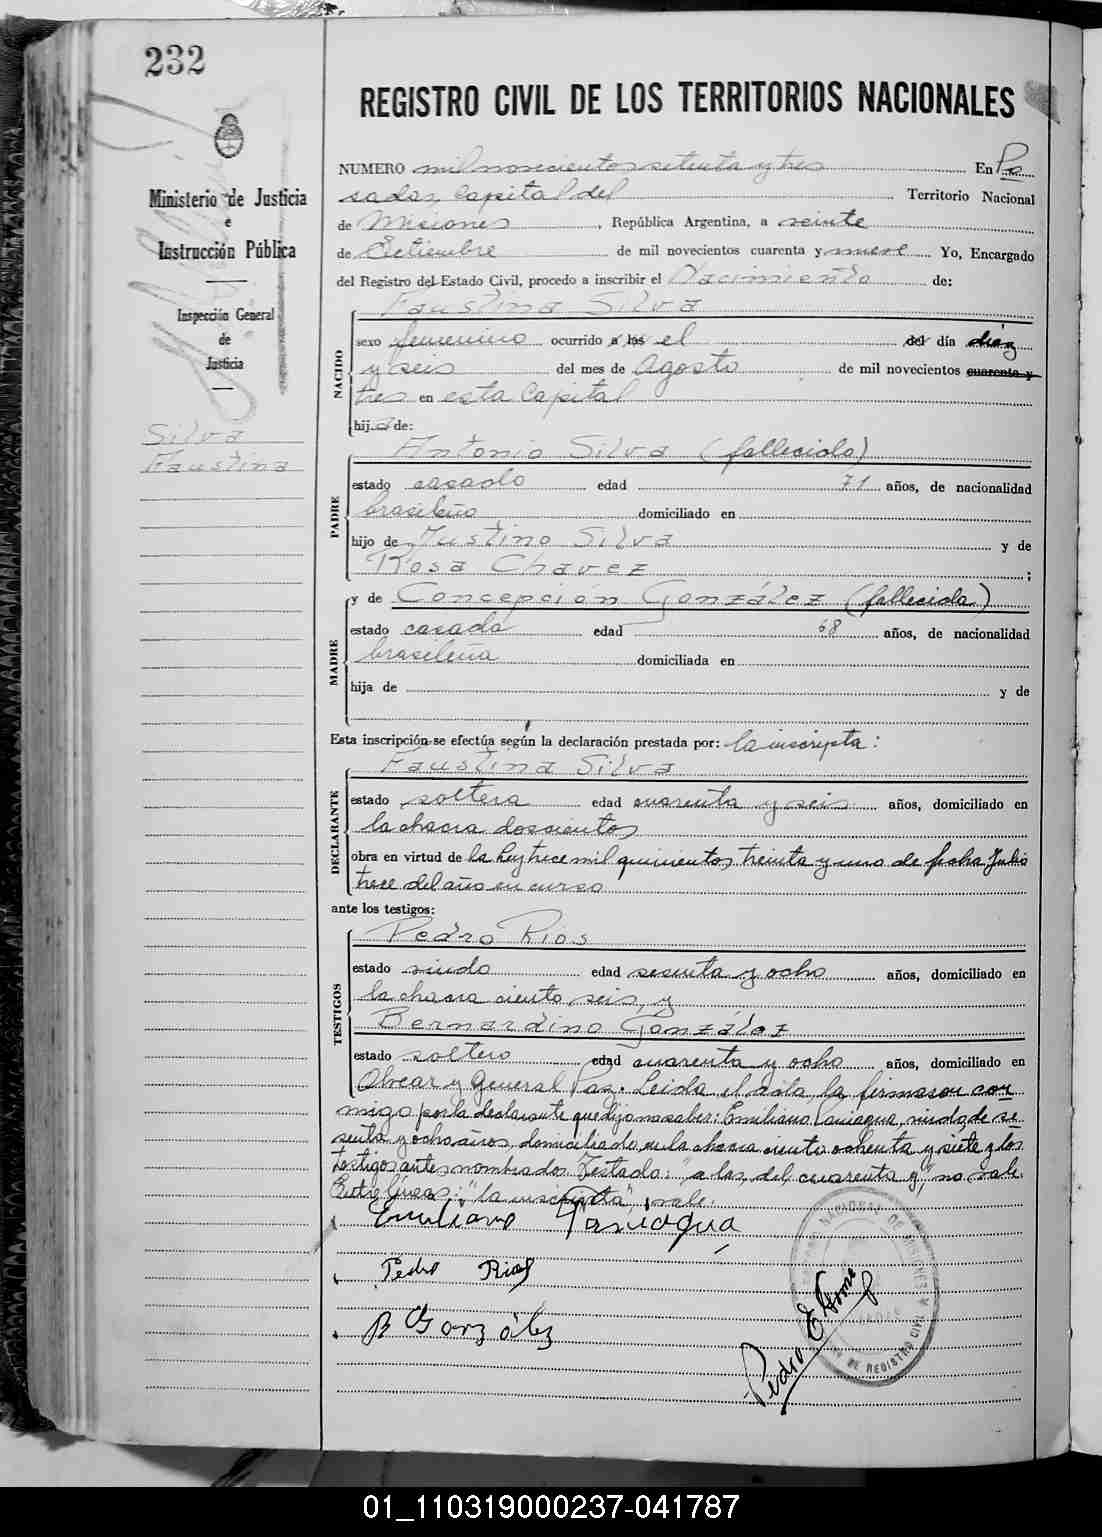 232
REGISTRO CIVIL DE LOS TERRITORIOS NACIONALES
Ministerio de Justicia
e
Instrucción Pública
Inspección General
de
Justicia
Silva
Faustina
NUMERO mil novecientos setenta y tres En Po
sadas, Capital del Territorio Nacional
de Misiones, República Argentina, a veinte
de Setiembre de mil novecientos cuarenta y nueve Yo, Encargado
del Registro del Estado Civil, procedo a inscribir el Nacimiento de:
Faustina Silva
NACIDO
sexo femenino ocurrido a las el del día diez
y seis del mes de Agosto de mil novecientos cuarenta y
tres en esta Capital
hija de:
Antonio Silva (fallecido)
PADRE
estado casado edad 71 años, de nacionalidad
brasileño domiciliado en
hijo de Justino Silva y de
Rosa Chavez;
y de Concepción González (fallecida)
MADRE
estado casada edad 68 años, de nacionalidad
brasileña domiciliada en
hija de y de
Esta inscripción se efectúa según la declaración prestada por: la inscripta:
Faustina Silva
DECLARANTE
estado soltera edad cuarenta y seis años, domiciliado en
la chacra doscientos
obra en virtud de la ley trece mil quinientos treinta y uno de fecha Julio
trece del año en curso
ante los testigos:
Pedro Rios
TESTIGOS
estado viudo edad sesenta y ocho años, domiciliado en
la chacra ciento seis, y
Bernardino González
estado soltero edad cuarenta y ocho años, domiciliado en
Alvear y General Paz. Leida el acta, la firmaron con
migo por la declarante que dijo no saber: Emiliano Paniagua, viudo, de se
senta y ocho años, domiciliado en la chacra ciento ochenta y siete y los
testigos antes nombrados. Testado: "a las, del cuarenta y", no vale.
Entre lineas: "la inscripta", vale.
Emiliano Paniagua
Pedro Rios
B González
Pedro E
01_110319000237-041787